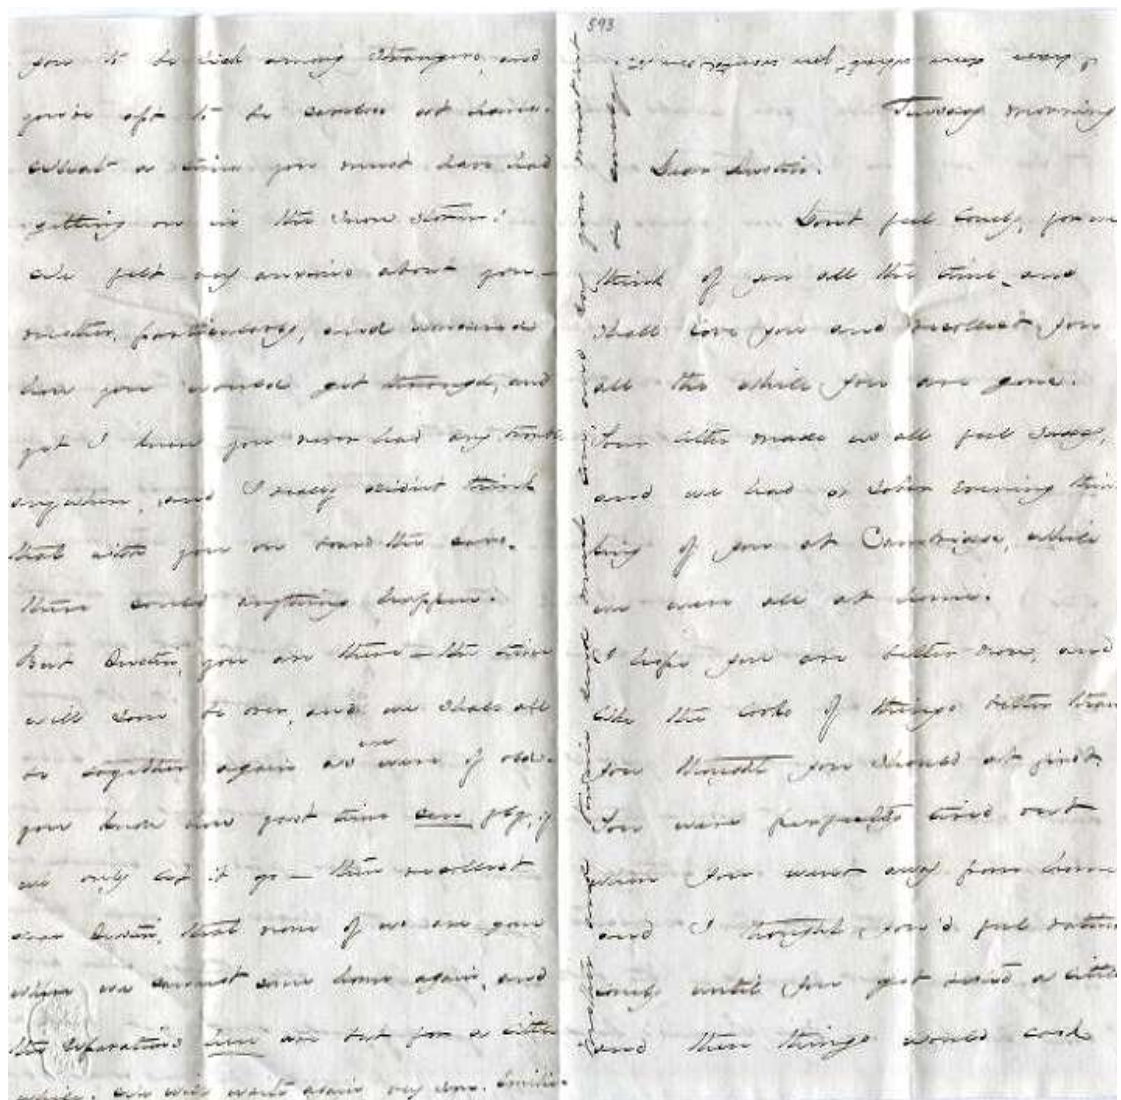 you to be sick among strangers, and
you're apt to be careless at home.
What a time you must have had
getting on in the snow storm!
We felt very anxious about you –
mother, particularly, and wondered
how you would get through, and
yet I knew you never had any trouble
anywhere, and I really didnt think
that with you on board the cars,
there could anything happen.
But Austin, you are there – the time
will soon be over, and we shall all
be together again as ever were of old.
you know how fast time can fly, if
we only let it go – then recollect
dear Austin, that none of us are gone
where we cannot come home again, and
the separations here are but for a little
while. We will write again very soon. Emilie.
593
Tuesday morning
Dear Austin.
Dont feel lonely, for we
think of you all the time, and
shall love you and recollect you
all the while you are gone.
Your letter made us all feel sadly,
and we had a sober evening thin
king of you at Cambridge, while
we were all at home.
I hope you are better now, and
like the looks of things better than
you thought you should at first.
You were perfectly tired out
when you went away from home
and I thought you'd feel rather
lonely until you got rested a little
and then things would look
Mother and Vinnie send much love, and say you must